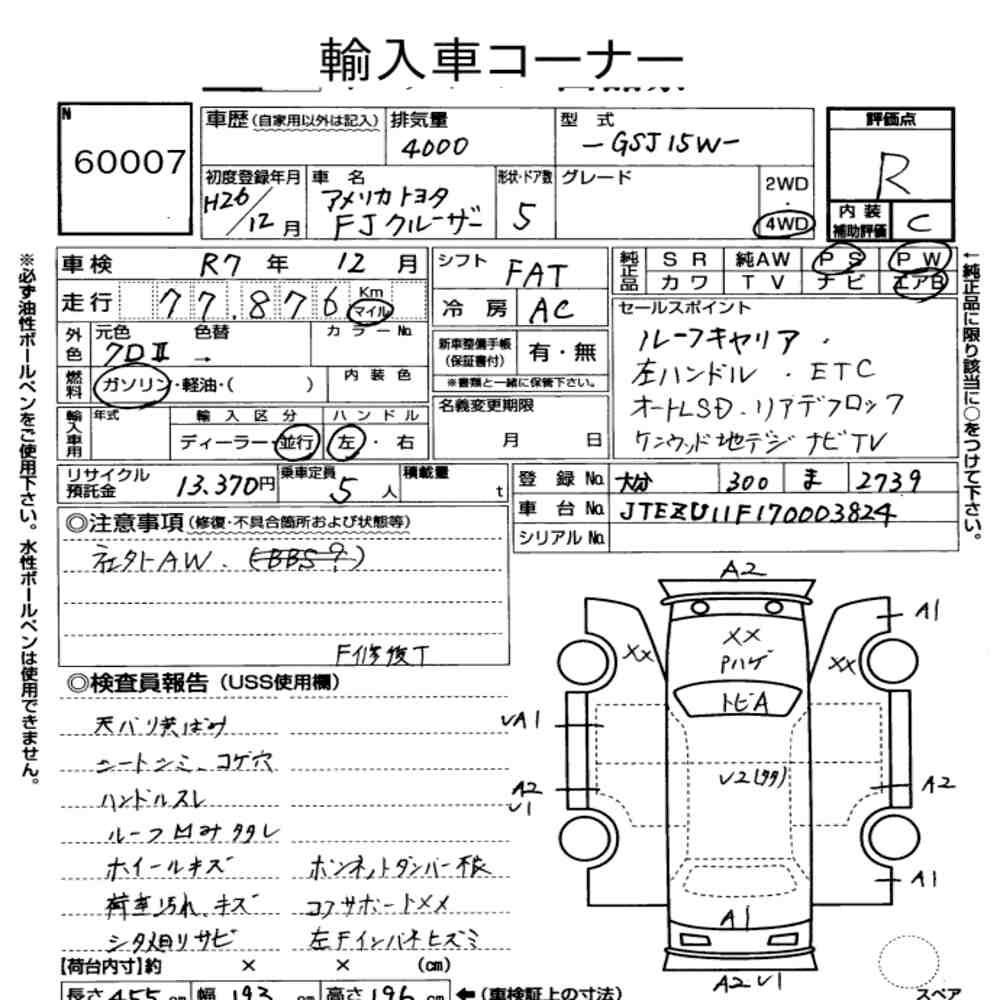 輸入車コーナー
N
60007
車歴(自家用以外は記入)
排気量
4000
型 式
-GSJ15W-
評価点
R
内装
補助評価
C
初度登録年月
H26/12月
車 名
アメリカトヨタ
FJクルーザー
形状・ドア数
5
グレード
2WD
・
4WD
車検 R7年 12月
走行 77.876 Km
マイル
シフト FAT
冷房 AC
純正品
SR 純AW PS PW
カワ TV ナビ エアB
外色
元色 色替
クロⅡ →
カラーNo.
燃料
ガソリン・軽油・( )
内装色
新車整備手帳
(保証書付)
有・無
※書類と一緒に保管下さい。
セールスポイント
ルーフキャリア .
左ハンドル . ETC
オートLSD . リアデフロック
ケンウッド地デジ ナビTV
輸入車用
年式
輸入区分
ディーラー・並行
ハンドル
左・右
名義変更期限
月 日
リサイクル
預託金
13.370円
乗車定員
5人
積載量
t
登録No. 大分 300 ま 2739
車台No. JTEZU11F170003824
シリアルNo.
◎注意事項(修復・不具合箇所および状態等)
社外AW. (BBS?)
F修復T
◎検査員報告(USS使用欄)
天バリ黄ばみ
シートシミ、コゲ穴
ハンドルスレ
ルーフ凹みタタレ
ホイールキズ ボンネットダンパー不良
荷室汚れ、キズ コアサポートXX
シタ廻りサビ 左Fインパネヒズミ
【荷台内寸】約 × × (cm)
長さ455cm 幅193cm 高さ196cm ←(車検証上の寸法)
※必ず油性ボールペンをご使用下さい。水性ボールペンは使用できません。
←純正品に限り該当に○をつけて下さい。
A2
A1
XX
XX
Pハゲ
XX
トビA
UA1
A2
U1
U2(タタ)
A2
A1
A1
A2 U1
スペア